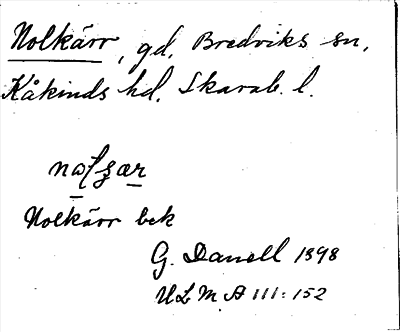 Nolkärr, gd, Bredviks sn,
Kåkinds hd, Skarab. l.
Nolkärr bek
G. Danell 1898
ULMA 111:152